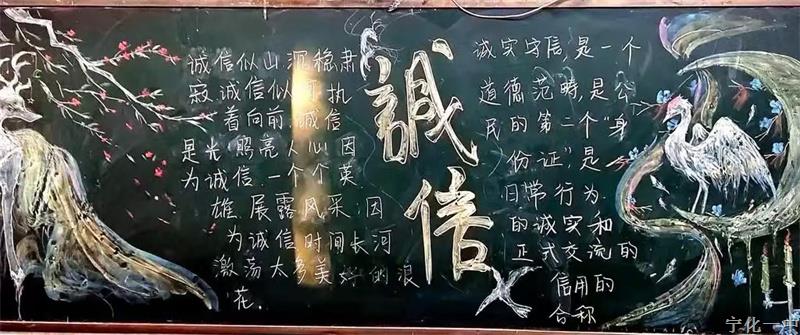 诚信似山沉稳肃
寂诚信似 执
着向前.诚信
是光照亮人心因
为诚信.一个个英
雄,展露风采;因
为诚信时间长河
激荡太多美妙的浪
花.
誠信
诚实守信,是一个
道德范畴,是公
民的第二个“身
份证”,是
日常行为
的诚实和
正式交流的
信用的
合称
宁化一中